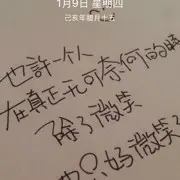 1月9日 星期四
己亥年腊月十五
也許一个人
在真正无可奈何的時
除了微笑
只好微笑了